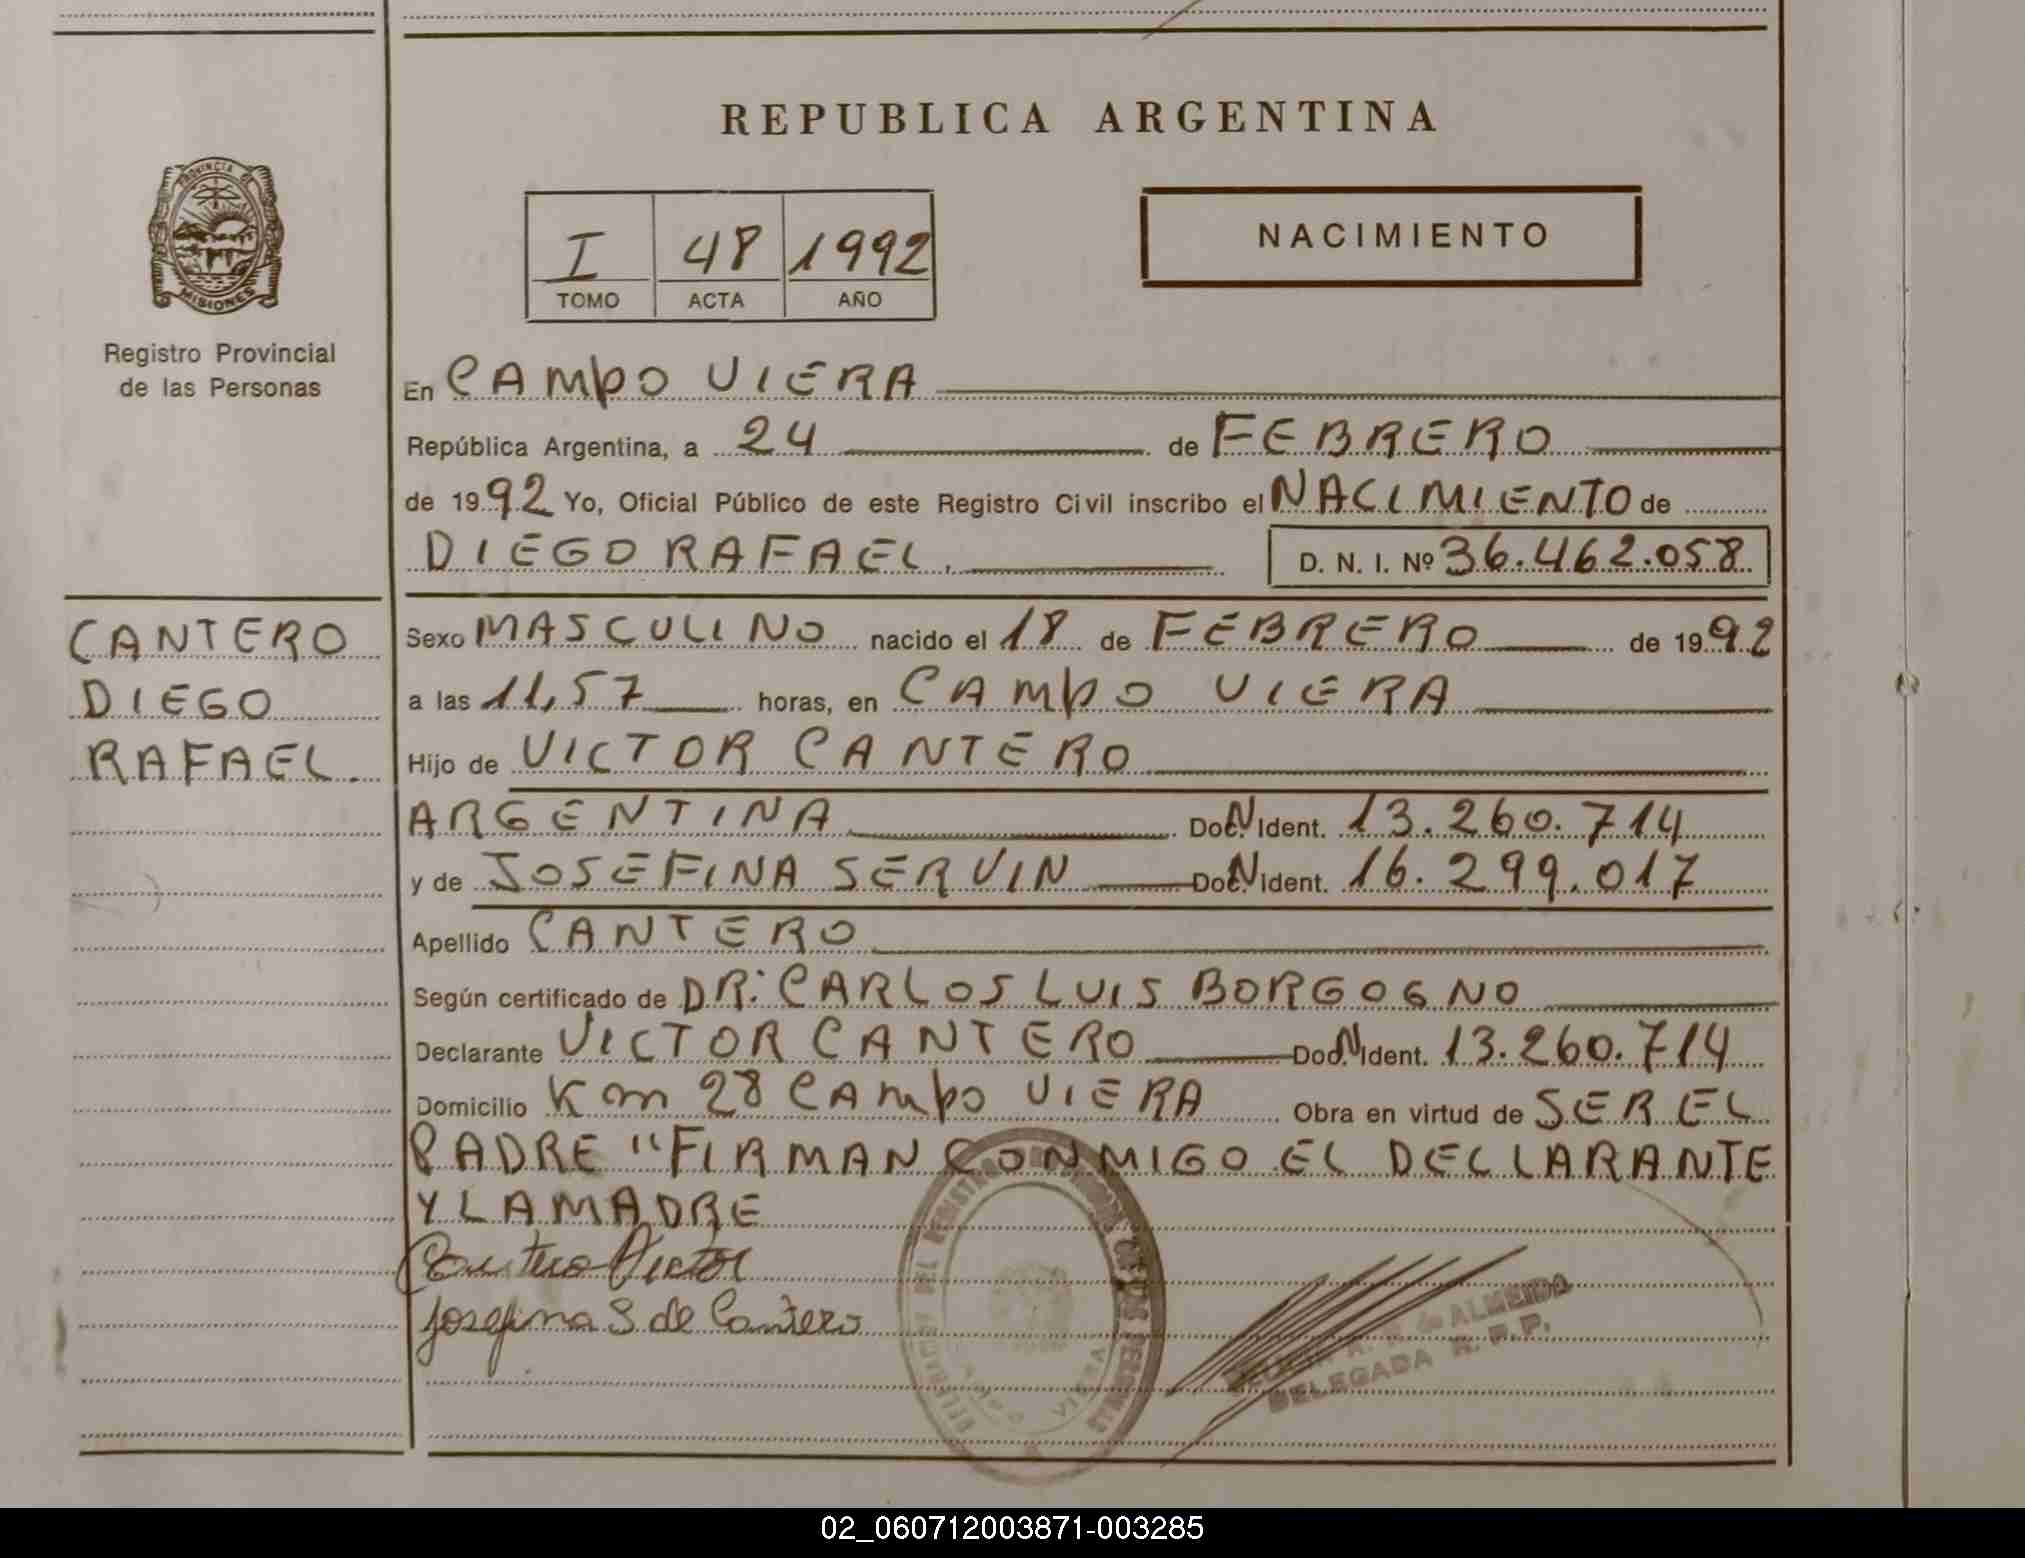 REPUBLICA ARGENTINA
PROVINCIA DE
MISIONES
Registro Provincial
de las Personas
I 48 1992
TOMO ACTA AÑO
NACIMIENTO
En CAMPO VIERA
República Argentina, a 24 de FEBRERO
de 1992 Yo, Oficial Público de este Registro Civil inscribo el NACIMIENTO de
DIEGO RAFAEL. D. N. I. Nº 36.462.058
CANTERO
DIEGO
RAFAEL.
Sexo MASCULINO nacido el 18 de FEBRERO de 1992
a las 11,57 horas, en CAMPO VIERA
Hijo de VICTOR CANTERO
ARGENTINA Doc. N Ident. 13.260.714
y de JOSEFINA SERVIN Doc. N Ident. 16.299.017
Apellido CANTERO
Según certificado de DR: CARLOS LUIS BORGOGNO
Declarante VICTOR CANTERO Doc. N Ident. 13.260.714
Domicilio Km 28 CAMPO VIERA Obra en virtud de SER EL
PADRE "FIRMAN CONMIGO EL DECLARANTE
Y LA MADRE
Cantero Victor
Josefina S de Cantero
de ALMEIDA
DELEGADA R. P. P.
VIERA
02_060712003871-003285